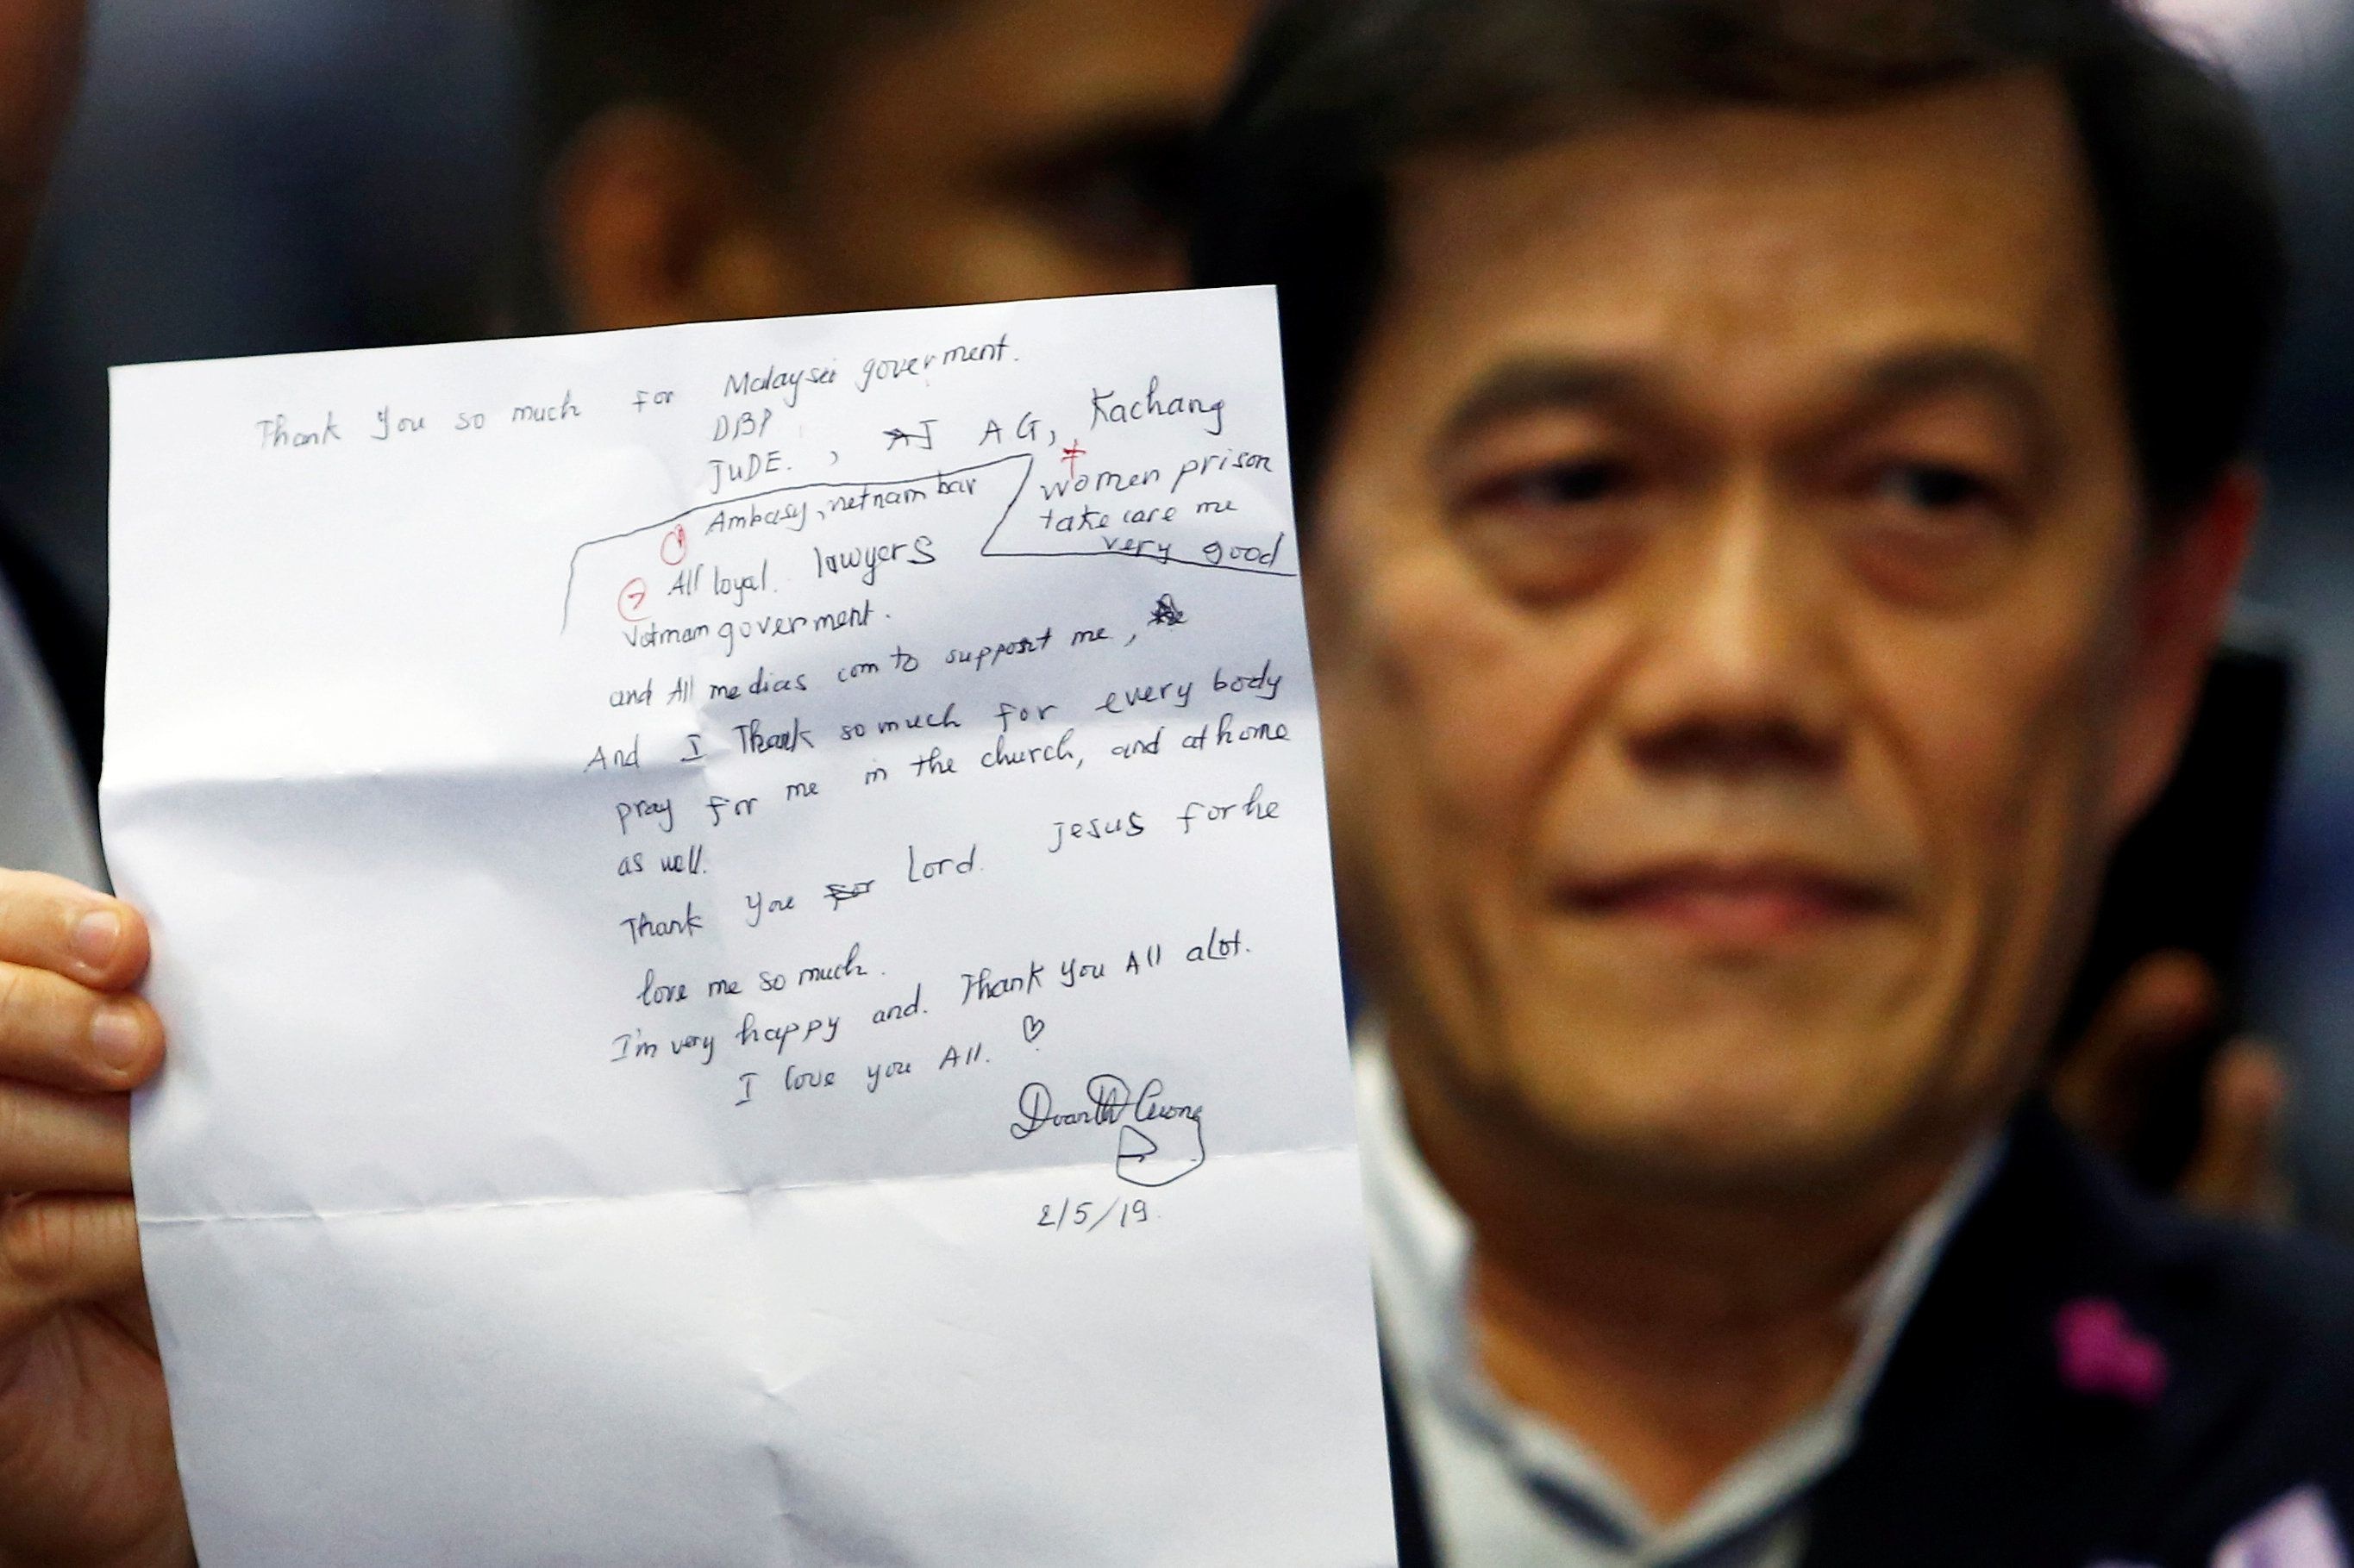 Thank you so much for Malaysei goverment.
DBP
JUDE. , AG, Kachang
women prison
take care me
very good
① Ambasy, vietnam bar
② All loyal. lawyers
vetman goverment.
and All medias com to support me,
And I Thank so much for every body
pray for me in the church, and at home
as well.
Thank you Lord. Jesus for he
love me so much.
I'm very happy and. Thank you All alot.
I love you All. ♡
DoanThi Huong
2/5/19.